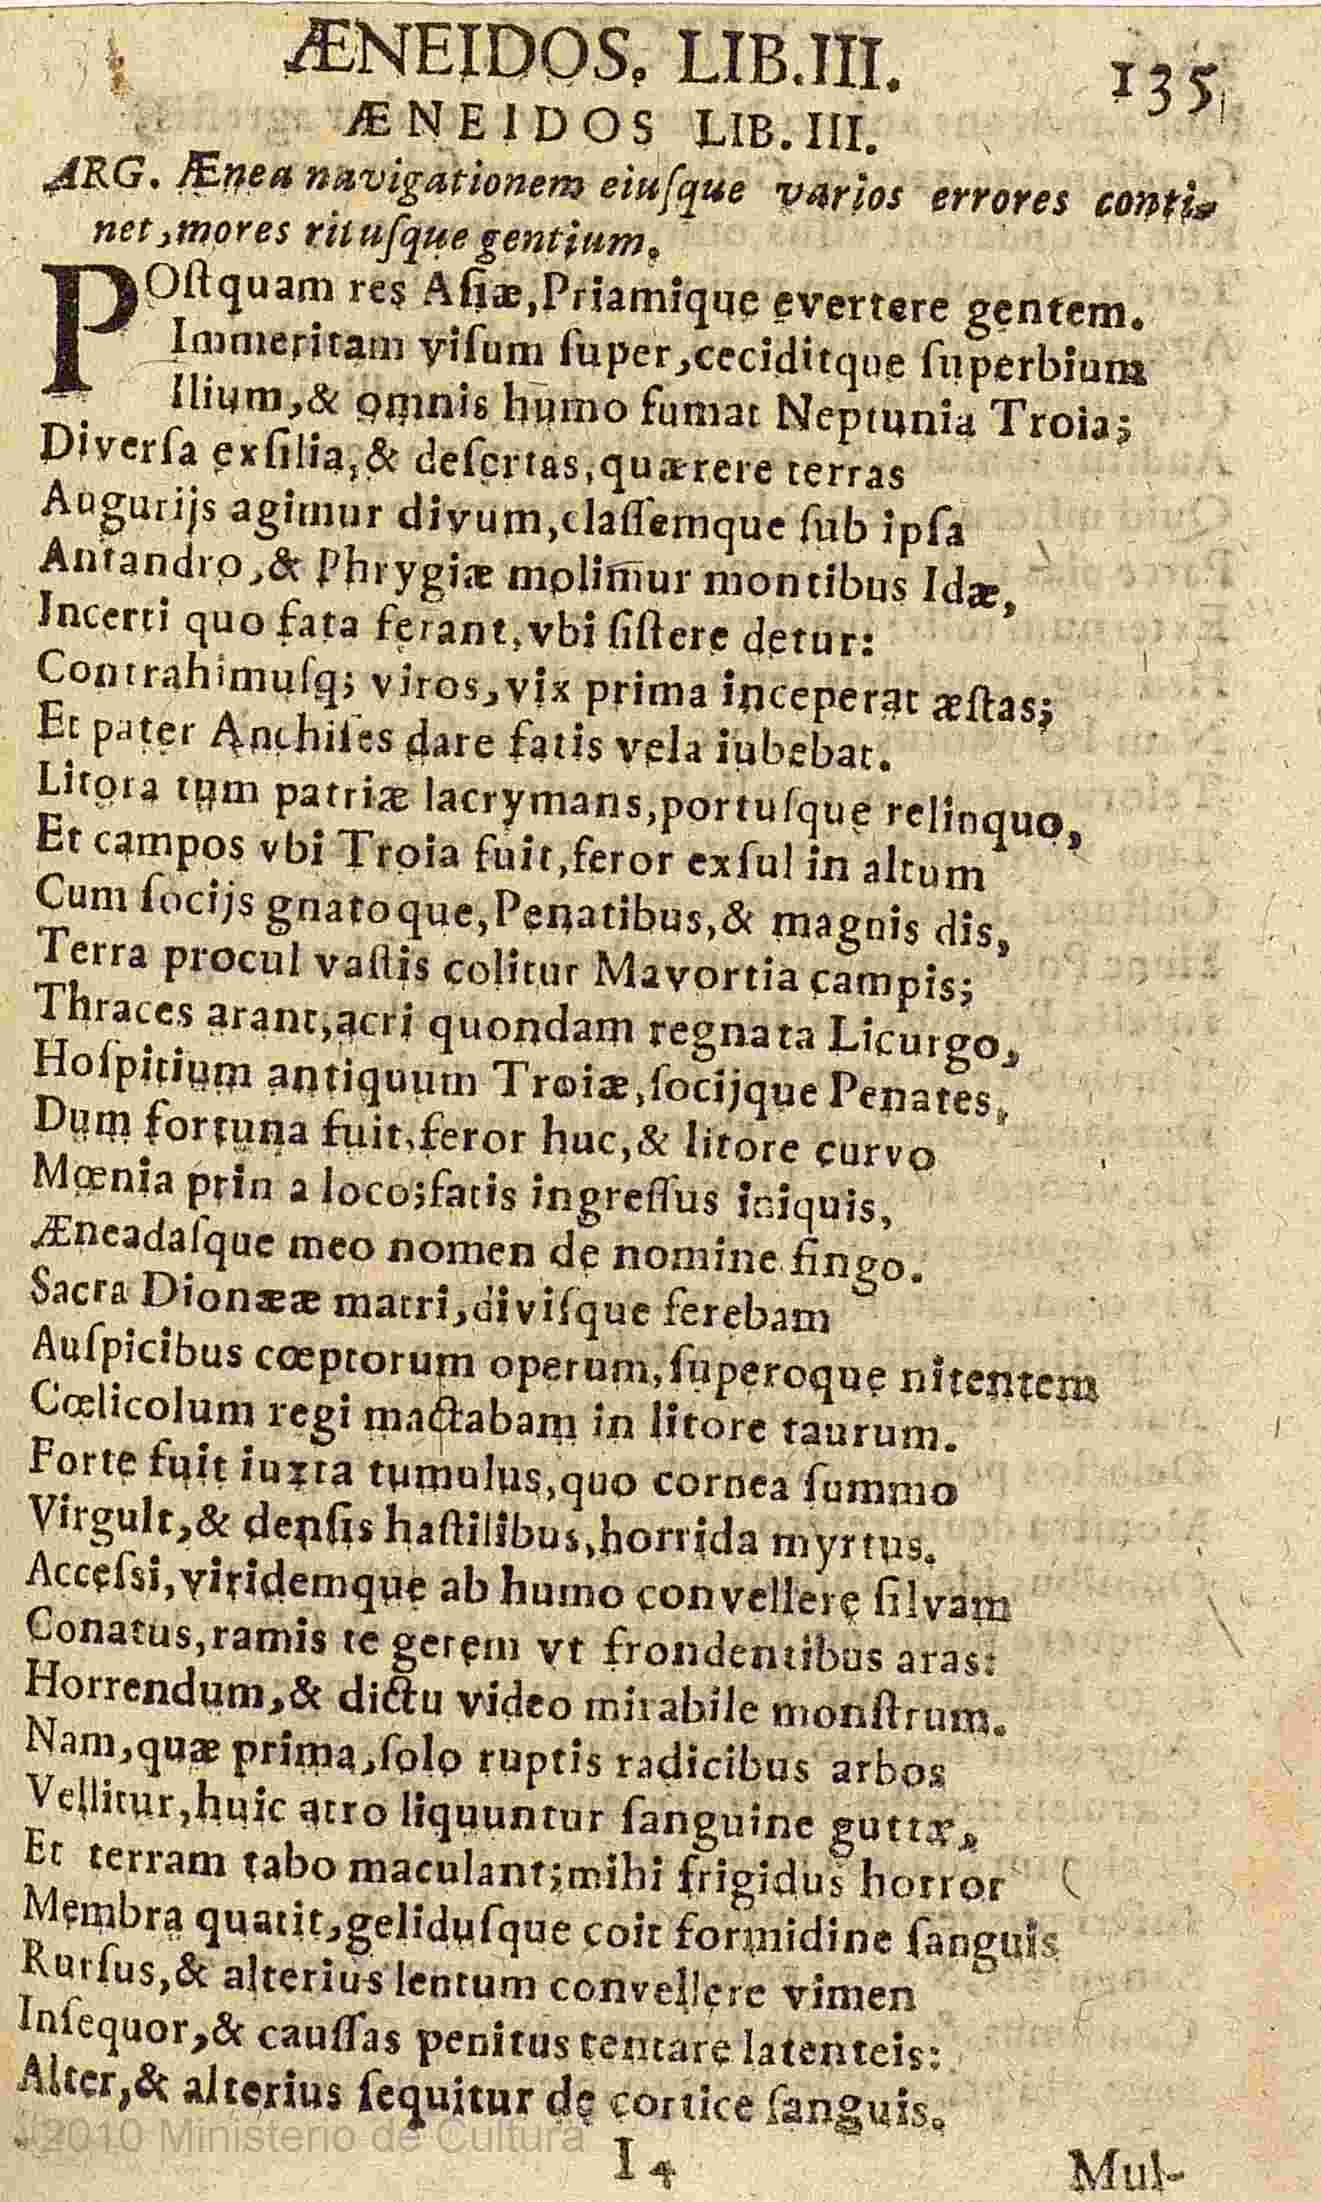 ÆNEIDOS. LIB.III. 135
ÆNEIDOS LIB.III.
ARG. Ænea navigationem eiuſque varios errores conti-
net, mores rituſque gentium.
POſtquam res Aſiæ, Priamique evertere gentem.
Immeritam viſum ſuper, ceciditque ſuperbium
Ilium, & omnis humo fumat Neptunia Troia;
Diverſa exſilia, & deſertas, quærere terras
Augurijs agimur divum, claſſemque ſub ipſa
Antandro, & Phrygiæ molimur montibus Idæ,
Incerti quo fata ferant, vbi ſiſtere detur:
Contrahimuſq; viros, vix prima inceperat æſtas;
Et pater Anchiſes dare fatis vela iubebat.
Litora tum patriæ lacrymans, portuſque relinquo,
Et campos vbi Troia fuit, feror exſul in altum
Cum ſocijs gnatoque, Penatibus, & magnis dis,
Terra procul vaſtis colitur Mavortia campis;
Thraces arant, acri quondam regnata Licurgo,
Hoſpitium antiquum Troiæ, ſocijque Penates,
Dum fortuna fuit, feror huc, & litore curvo
Mœnia prin a loco; fatis ingreſſus iniquis,
Æneadaſque meo nomen de nomine fingo.
Sacra Dionææ matri, diviſque ferebam
Auſpicibus cœptorum operum, ſuperoque nitentem
Cœlicolum regi mactabam in litore taurum.
Forte fuit iuxta tumulus, quo cornea ſummo
Virgult, & denſis haſtilibus, horrida myrtus.
Acceſsi, viridemque ab humo convellere ſilvam
Conatus, ramis te gerem vt frondentibus aras:
Horrendum, & dictu video mirabile monſtrum.
Nam, quæ prima, ſolo ruptis radicibus arbos
Vellitur, huic atro liquuntur ſanguine guttæ,
Et terram tabo maculant; mihi frigidus horror
Membra quatit, geliduſque coit formidine ſanguis
Rurſus, & alterius lentum convellere vimen
Inſequor, & cauſſas penitus tentare latenteis:
Alter, & alterius ſequitur de cortice ſanguis.
©2010 Ministerio de Cultura
I 4
Mul-